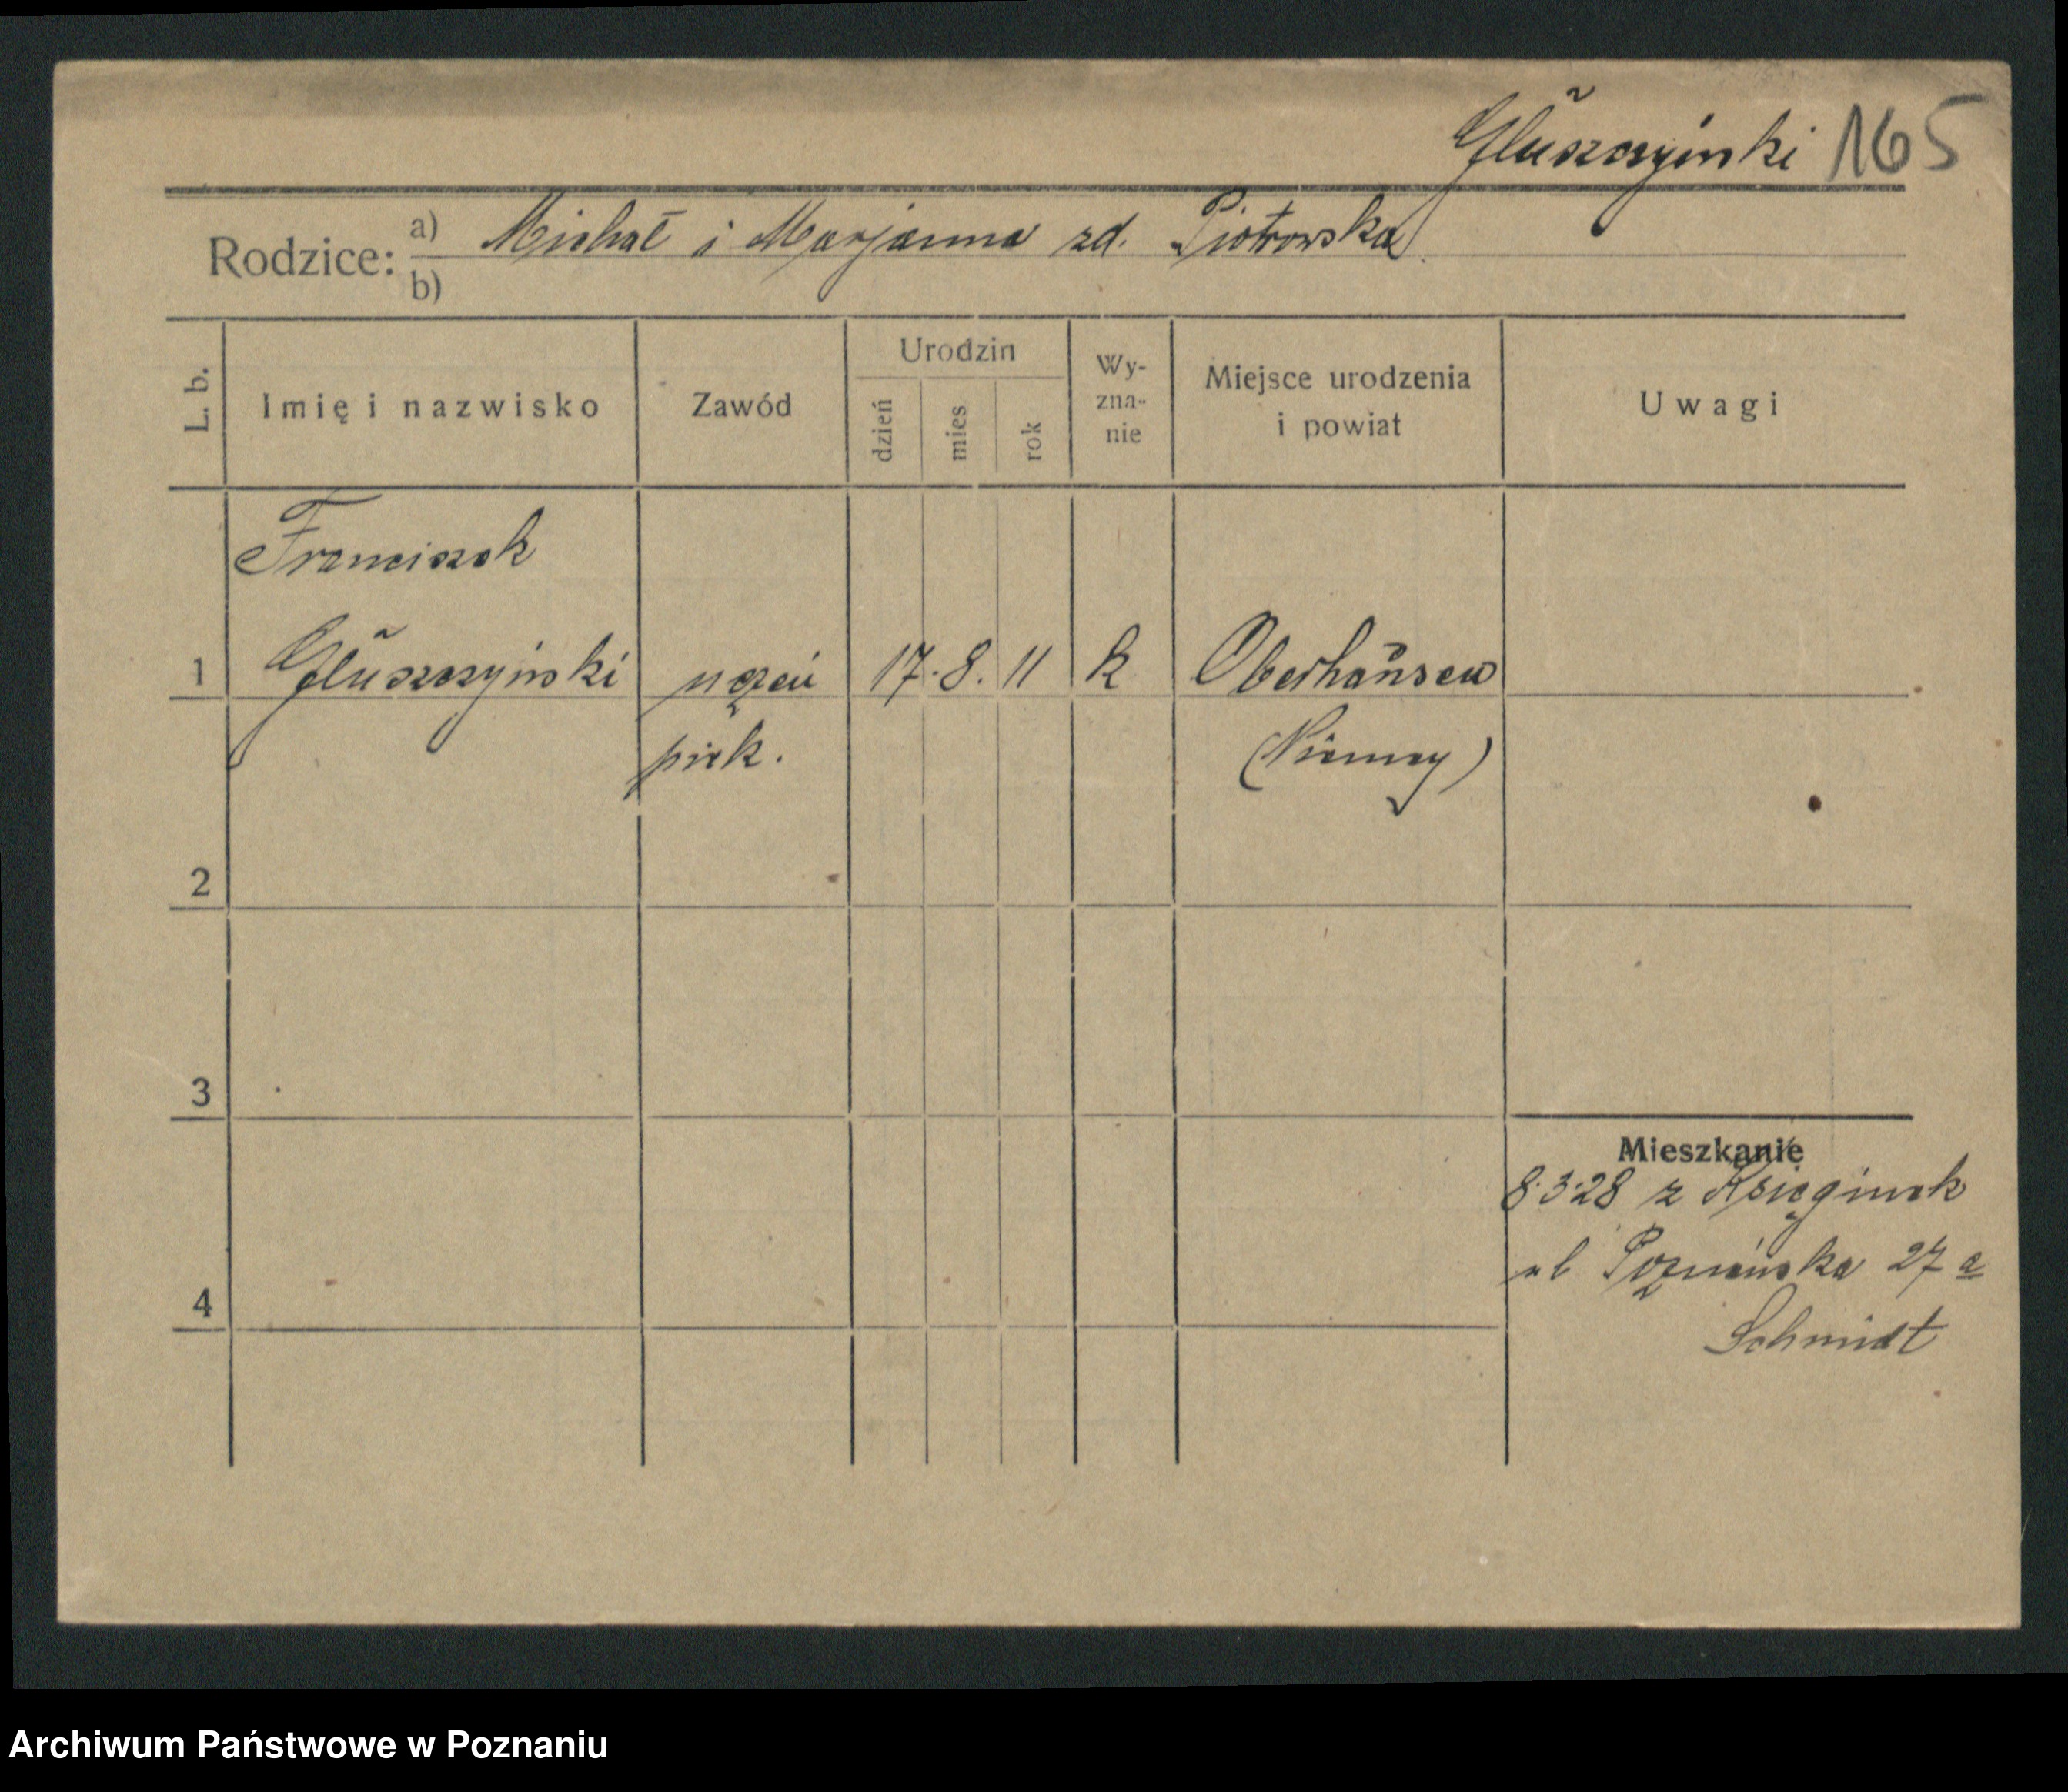 Głuszczyński 165
Rodzice: a) Michał i Marjanna zd. Piotrowska
b)
L. b. Imię i nazwisko Zawód Urodzin dzień mies rok Wy-zna-nie Miejsce urodzenia i powiat Uwagi
Franciszek
1 Głuszczyński uczeń 17. 8. 11 k Oberhausen
piek. (Niemcy)
2
3
Mieszkanie
8.3.28 z Księginek
ul Poznańska 27 a
4
Schmidt
Archiwum Państwowe w Poznaniu